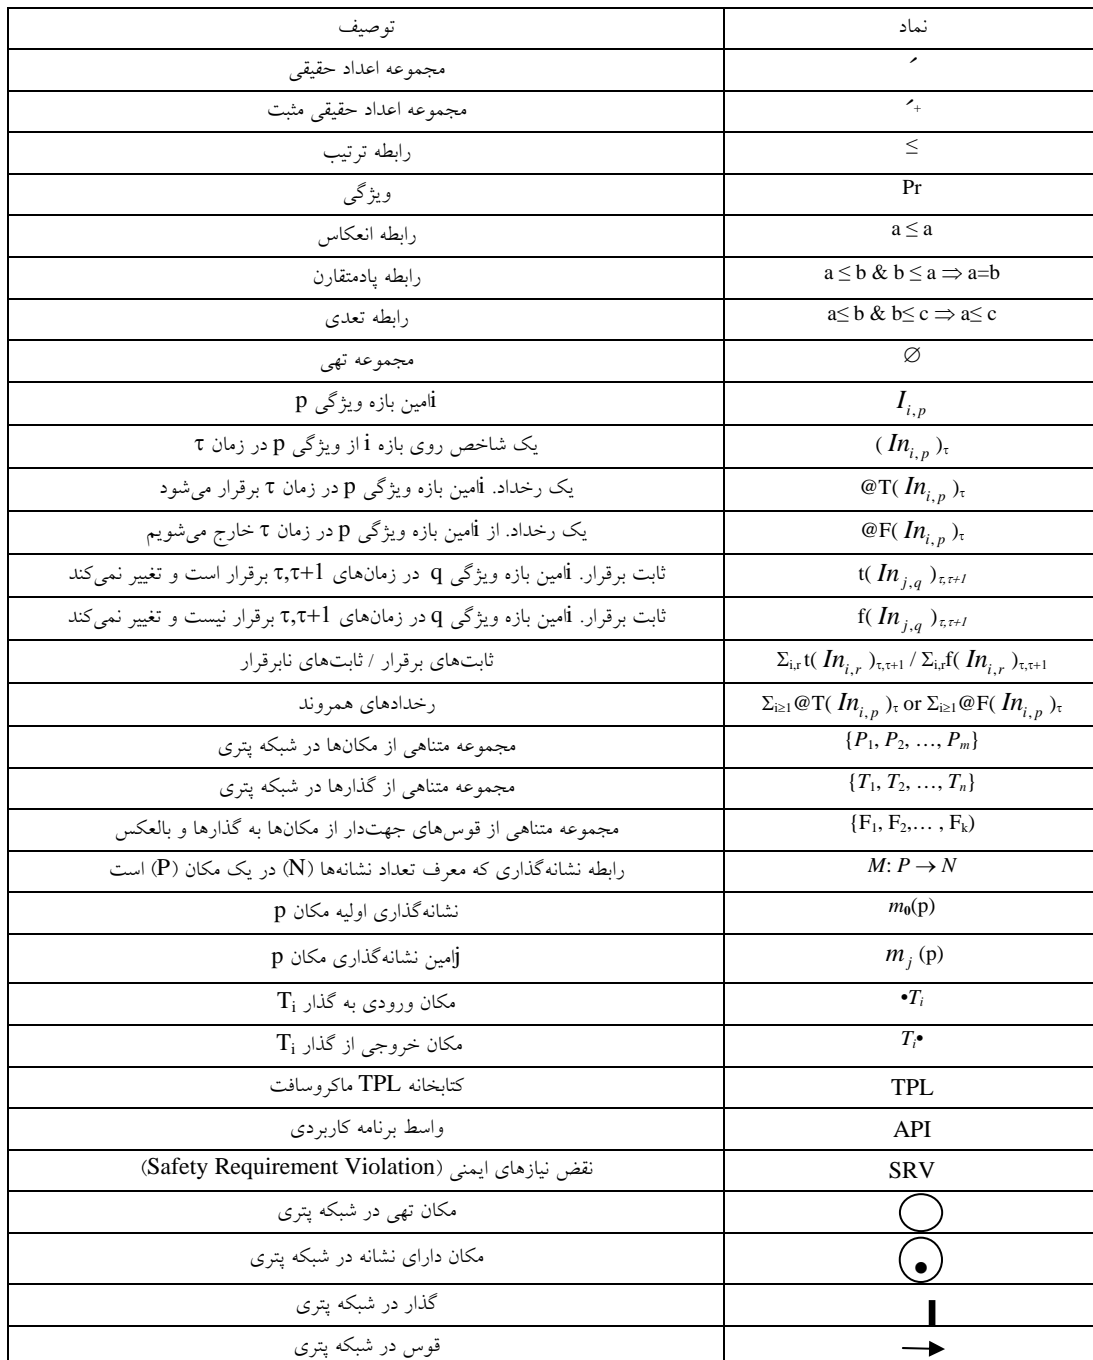 نماد توصیف
ˊ مجموعه اعداد حقیقی
ˊ+ مجموعه اعداد حقیقی مثبت
≤ رابطه ترتیب
Pr ویژگی
a ≤ a رابطه انعکاس
a ≤ b & b ≤ a ⇒ a=b رابطه پادمتقارن
a≤ b & b≤ c ⇒ a≤ c رابطه تعدی
∅ مجموعه تهی
I_{i,p} iامین بازه ویژگی p
( In_{i,p} )_τ یک شاخص روی بازه i از ویژگی p در زمان τ
@T( In_{i,p} )_τ یک رخداد. iامین بازه ویژگی p در زمان τ برقرار می‌شود
@F( In_{i,p} )_τ یک رخداد. از iامین بازه ویژگی p در زمان τ خارج می‌شویم
t( In_{j,q} )_{τ,τ+1} ثابت برقرار. iامین بازه ویژگی q در زمان‌های τ,τ+1 برقرار است و تغییر نمی‌کند
f( In_{j,q} )_{τ,τ+1} ثابت برقرار. iامین بازه ویژگی q در زمان‌های τ,τ+1 برقرار نیست و تغییر نمی‌کند
Σ_{i,r} t( In_{i,r} )_{τ,τ+1} / Σ_{i,r}f( In_{i,r} )_{τ,τ+1} ثابت‌های برقرار / ثابت‌های نابرقرار
Σ_{i≥1}@T( In_{i,p} )_τ or Σ_{i≥1}@F( In_{i,p} )_τ رخدادهای همروند
{P₁, P₂, …, Pₘ} مجموعه متناهی از مکان‌ها در شبکه پتری
{T₁, T₂, …, Tₙ} مجموعه متناهی از گذارها در شبکه پتری
{F₁, F₂,… , Fₖ) مجموعه متناهی از قوس‌های جهت‌دار از مکان‌ها به گذارها و بالعکس
M: P → N رابطه نشانه‌گذاری که معرف تعداد نشانه‌ها (N) در یک مکان (P) است
m₀(p) نشانه‌گذاری اولیه مکان p
m_j (p) jامین نشانه‌گذاری مکان p
•Tᵢ مکان ورودی به گذار Tᵢ
Tᵢ• مکان خروجی از گذار Tᵢ
TPL کتابخانه TPL ماکروسافت
API واسط برنامه کاربردی
SRV نقض نیازهای ایمنی (Safety Requirement Violation)
مکان تهی در شبکه پتری
مکان دارای نشانه در شبکه پتری
گذار در شبکه پتری
قوس در شبکه پتری